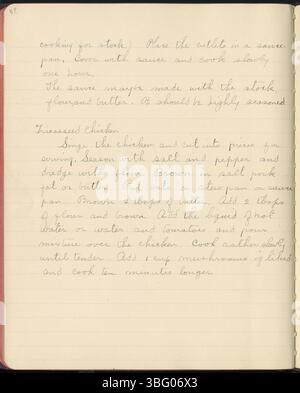 cooking for stock) Place the cutlets in a sauce
pan. Cover with sauce and cook slowly
one hour.
The sauce may be made with the stock
flour and butter. It should be highly seasoned
Fricasseed Chicken
Singe the chicken and cut into pieces for
serving. Season with salt and pepper and
dredge with flour. Brown in salt pork
fat or butter. Put into a stew pan or sauce
pan. Brown 2 tbsps of butter. Add 2 tbsps
of flour and brown. Add the liquid if not
water or water and tomatoes and pour
mixture over the chicken. Cook rather slowly
until tender. Add 1 cup mushrooms if liked
and cook ten minutes longer.
alamy
Image ID: 3BG06X3
www.alamy.com